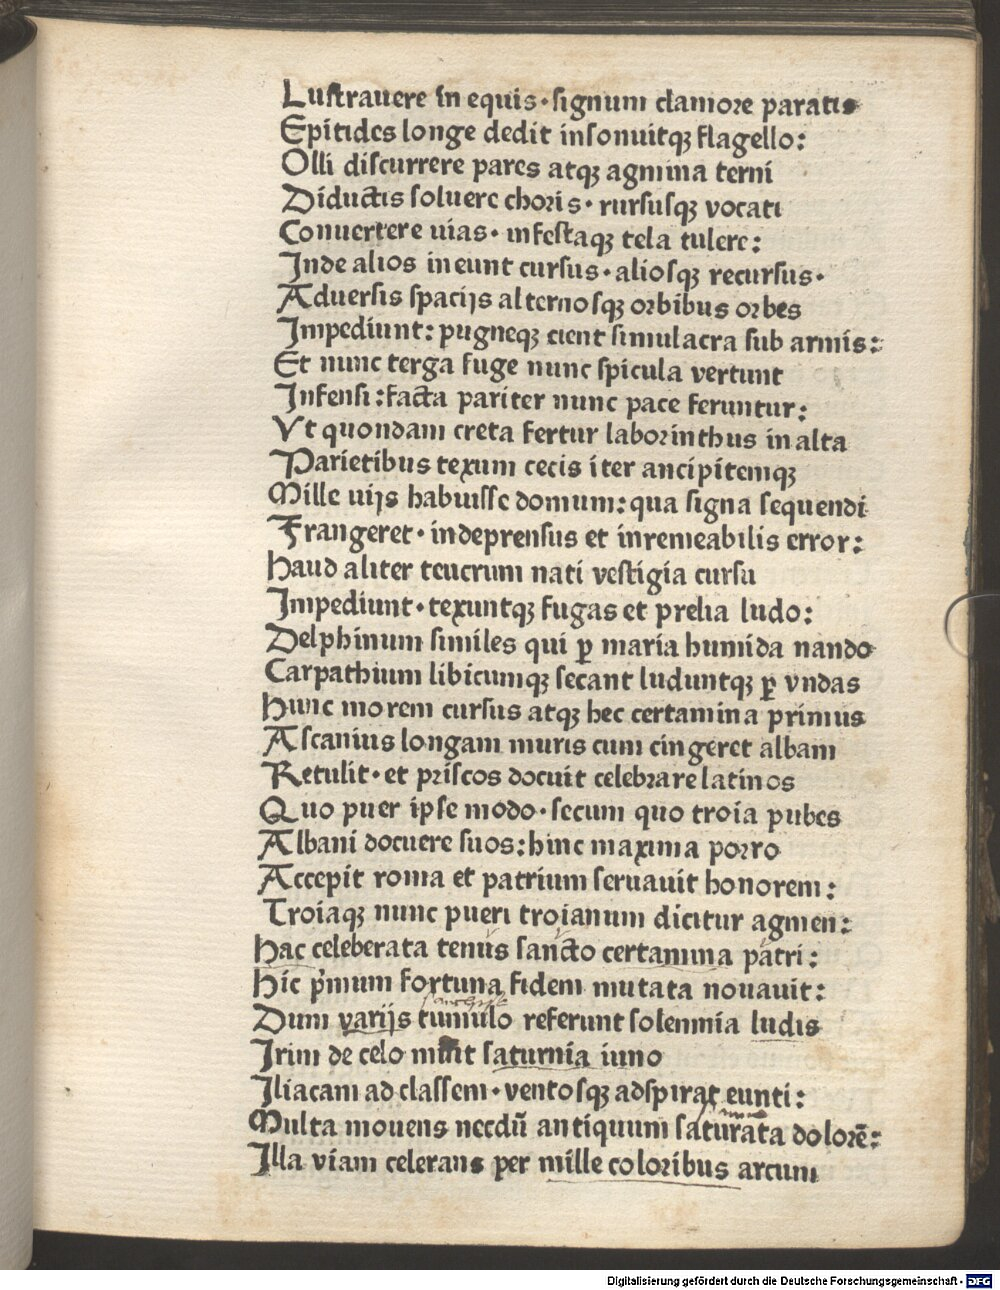 Lustrauere in equis · signum clamore paratis
Epitides longe dedit insonuitqꝫ flagello:
Olli discurrere pares atqꝫ agmina terni
Diductis soluere choris · rursusqꝫ vocati
Conuertere uias · infestaqꝫ tela tulere:
Inde alios ineunt cursus · aliosqꝫ recursus ·
Aduersis spacijs alternosqꝫ orbibus orbes
Impediunt: pugneqꝫ cient simulacra sub armis:
Et nunc terga fuge nunc spicula vertunt
Infensi: facta pariter nunc pace feruntur:
Vt quondam creta fertur laborinthus in alta
Parietibus texum cecis iter ancipitemqꝫ
Mille uijs habuisse domum: qua signa sequendi
Frangeret · indeprensus et inremeabilis error:
Haud aliter teucrum nati vestigia cursu
Impediunt · texuntqꝫ fugas et prelia ludo:
Delphinum similes qui ꝑ maria humida nando
Carpathium libicumqꝫ secant luduntqꝫ ꝑ vndas
Hunc morem cursus atqꝫ hec certamina primus
Ascanius longam muris cum cingeret albam
Retulit · et priscos docuit celebrare latinos
Quo puer ipse modo · secum quo troia pubes
Albani docuere suos: hinc maxima porro
Accepit roma et patrium seruauit honorem:
Troiaqꝫ nunc pueri troianum dicitur agmen:
Hac celeberata tenus sancto certamina patri:
Hic p̄mum fortuna fidem mutata nouauit:
Dum varijs tumulo referunt solennia ludis
Irim de celo misit saturnia iuno
Iliacam ad classem · ventosqꝫ adspirat eunti:
Multa mouens necdū antiquum saturata dolorē:
Illa viam celerans per mille coloribus arcum
Digitalisierung gefördert durch die Deutsche Forschungsgemeinschaft - DFG